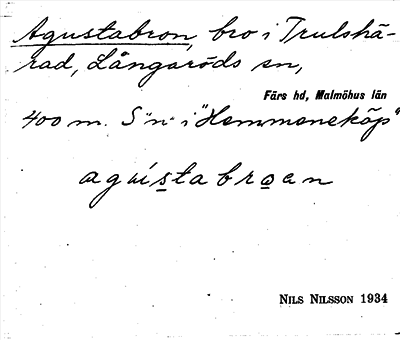 Agustabron, bro i Trulshä-
rad, Långaröds sn,
Färs hd, Malmöhus län
400 m. S "n" i "Hemmeneköp"
agu̍stabroen
NILS NILSSON 1934